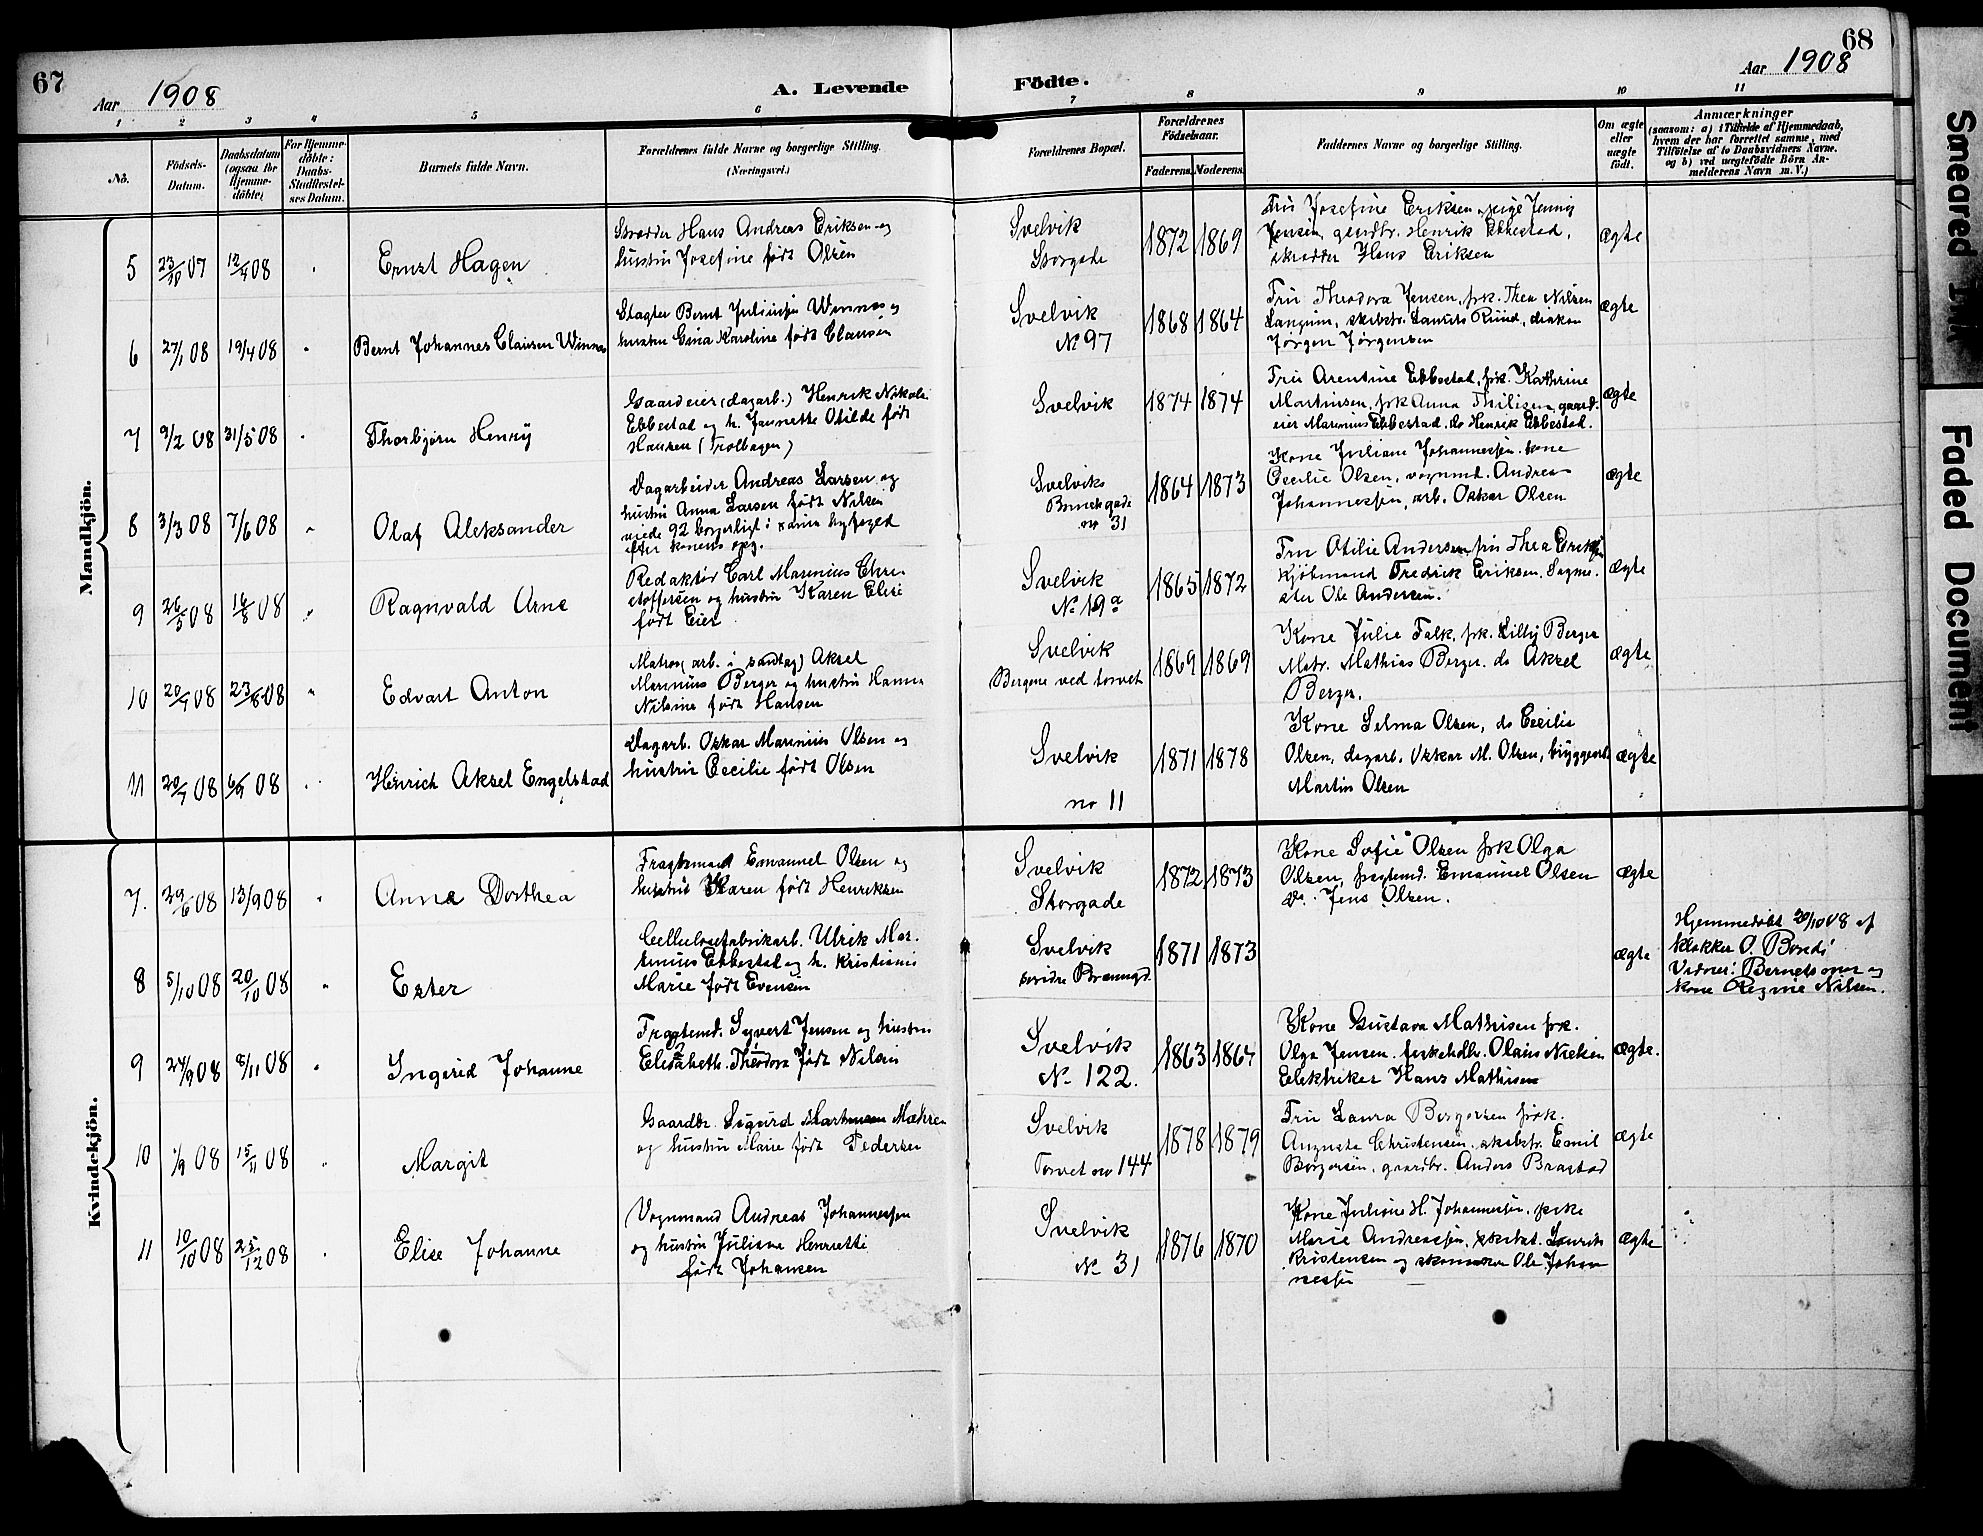 67
Aar 1908
A. Levende
Födte.
Aar 1908
68
1 2 3 4 5 6 7 8 9 10 11
No.
Födsels-
Datum.
Daabsdatum
(ogsaa for
Hjemme-
döbte)
For Hjemme-
döbte:
Daabs-
Stadfæstel-
ses Datum.
Barnets fulde Navn.
Forældrenes fulde Navne og borgerlige Stilling.
(Næringsvei.)
Forældrenes Bopæl.
Forældrenes
Födselsaar.
Faderens. Moderens.
Faddernes Navne og borgerlige Stilling.
Om ægte
eller
uægte
födt.
Anmærkninger
(saasom: a) i Tilfælde af Hjemmedaab,
hvem der har forrettet samme, med
Tilföielse af to Daabsvidners Navne.
og b) ved uægtefödte Börn An-
melderens Navn m. V.)
Mandkjön.
5 23/10 07 12/4 08 Ernst Hagen
Skrædder Hans Andreas Eriksen og
hustru Josefine født Olsen
Svelvik
Storgade
1872 1869
Fru Josefine Eriksen, pige Jenny
Jensen, gaardbr. Henrik Ebbestad,
skrædder Hans Eriksen
ægte
6 27/1 08 19/4 08 Bernt Johannes Clausen Winnes
Slagter Bernt Julius Winnes og
hustru Gina Karoline født Clausen
Svelvik
No 97
1868 1864
Fru Theodora Jensen, frk. Thea Nilsen
Langum, skibstr. Lauritz Ruud, diakon
Jørgen Jørgensen
ægte
7 9/2 08 31/5 08 Thorbjørn Henry
Gaardeier (dagarb.) Henrik Nikolai
Ebbestad og h. Jeanette Otilde født
Hansen (Trolbagen)
Svelvik
1874 1874
Fru Arentine Ebbestad, frk. Kathrine
Martinsen, frk Anna Thilisen, gaard-
eier Marinius Ebbestad, do Henrik Ebbestad.
ægte
8 3/3 08 7/6 08 Olaf Aleksander
Dagarbeider Andreas Larsen og
hustru Anna Larsen født Nilsen
viede 92 borgerligt i byfoged
efter konens opg.
Svelvik
no 31
1864 1873
Kone Juliane Johannessen, kone
Cecilie Olsen, vognmd. Andreas
Johannessen, arb. Oskar Olsen
ægte
9 26/5 08 16/8 08 Ragnvald Arne
Redaktør Carl Marenius Chri-
stoffersen og hustru Karen Elise
født Eier
Svelvik
No 19a
1865 1872
Fru Otilie Andersen, fru Thea Eriksen
Kjøbmand Fredrik Eriksen. Sogne.
Ole Andersen.
ægte
10 20/7 08 23/8 08 Edvart Anton
Matros (arb. i sandtag) Aksel
Marinius Berger og hustru Hanna
Nilsine født Hansen
Svelvik
Bergene ved torvet
1869 1869
Kone Julie Falk, frk. Lilly Berger
Matr. Mathias Berger. do Aksel
Berger.
ægte
11 20/7 08 6/9 08 Henrich Aksel Engelstad
Dagarb. Oskar Marinius Olsen og
hustru Cecilie født Olsen
Svelvik
no 11
1871 1878
Kone Selma Olsen, do Cecilie
Olsen, dagarb. Oskar M. Olsen, bryggearb
Martin Olsen
ægte
Kvindekjön.
7. 29/6 08 13/9 08 Anna Dorthea
Fragtemand Emanuel Olsen og
hustru Karen født Henriksen
Svelvik
Storgade
1872 1873
Kone Sofie Olsen frk Olga
Olsen, fragtemd. Emanuel Olsen
do. Jens Olsen.
ægte
8 5/10 08 20/10 08 Ester
Cellulosefabrikarb. Ulrik Mar-
enius Ebbestad og h. Kristiane
Marie født Evensen
Svelvik
1871 1873
ægte
Hjemmedøbt 20/10 08 af
klokker O. Borud
Vidner: Barnets mor og
kone Regine Nilsen.
9 24/9 08 8/11 08 Ingerid Johanne
Fragtemd. Syvert Jensen og hustru
Elisabeth Theodora født Nilsen
Svelvik
No 122.
1863 1864
Kone Gustava Mathisen frk.
Olga Jensen. fiskehdlr. Olaus Nielsen
Elektriker Hans Mathisen
ægte.
10 1/9 08 15/11 08 Margit
Gaardbr. Sigurd Martinsen
og hustru Marie født Pedersen
Svelvik
Torvet no 144
1878 1879
Fru Laura Borgersen frøk.
Augusta Christensen, skibstr. Emil
Borgersen, gaardbr. Anders Bragstad
ægte
11 10/10 08 25/12 08 Elise Johanne
Vognmand Andreas Johannessen
og hustru Juliane Henriette
født Johansen
Svelvik
No 31
1876 1870
Kone Juliane H. Johannessen, pike
Marie Andreassen, Laurits
Kristensen og Ole Johan
nessen
ægte
Smeared Ink
Faded Document